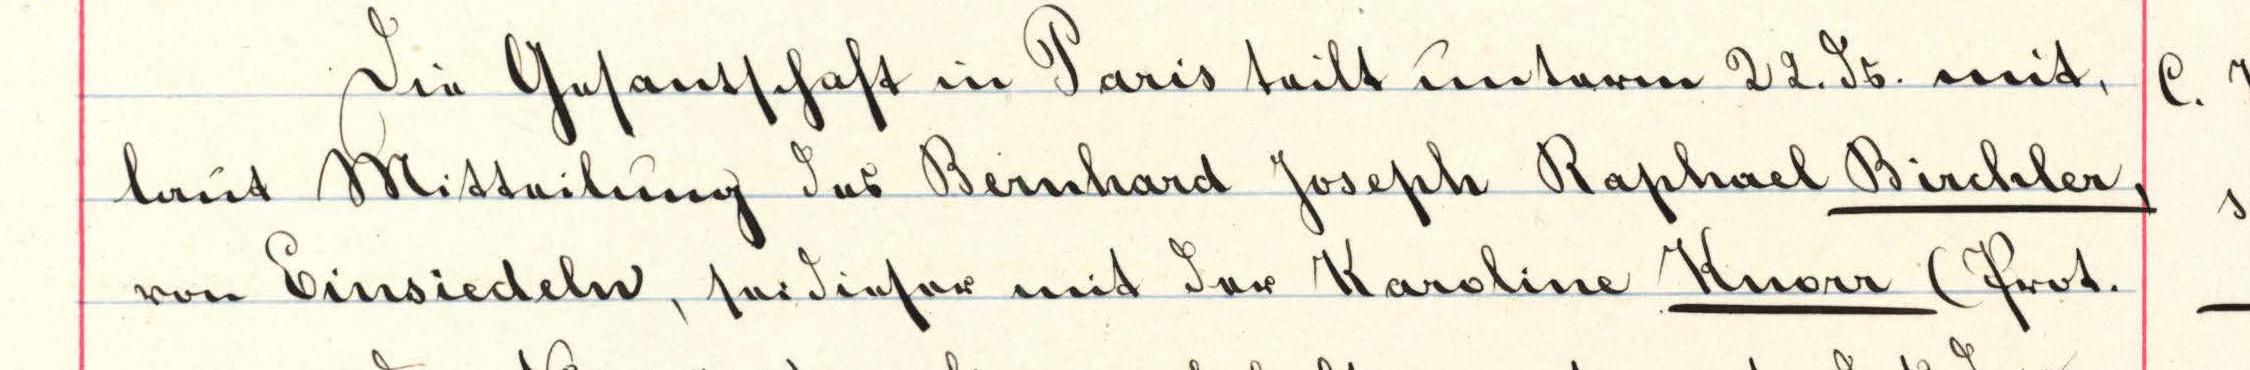 Die Gesantschaft in Paris teilt unterm 22. ds. mit, C.
laut Mitteilung des Bernhard Joseph Raphael Birchler,
von Einsiedeln, sei dieser mit der Karoline Knorr (Prot.